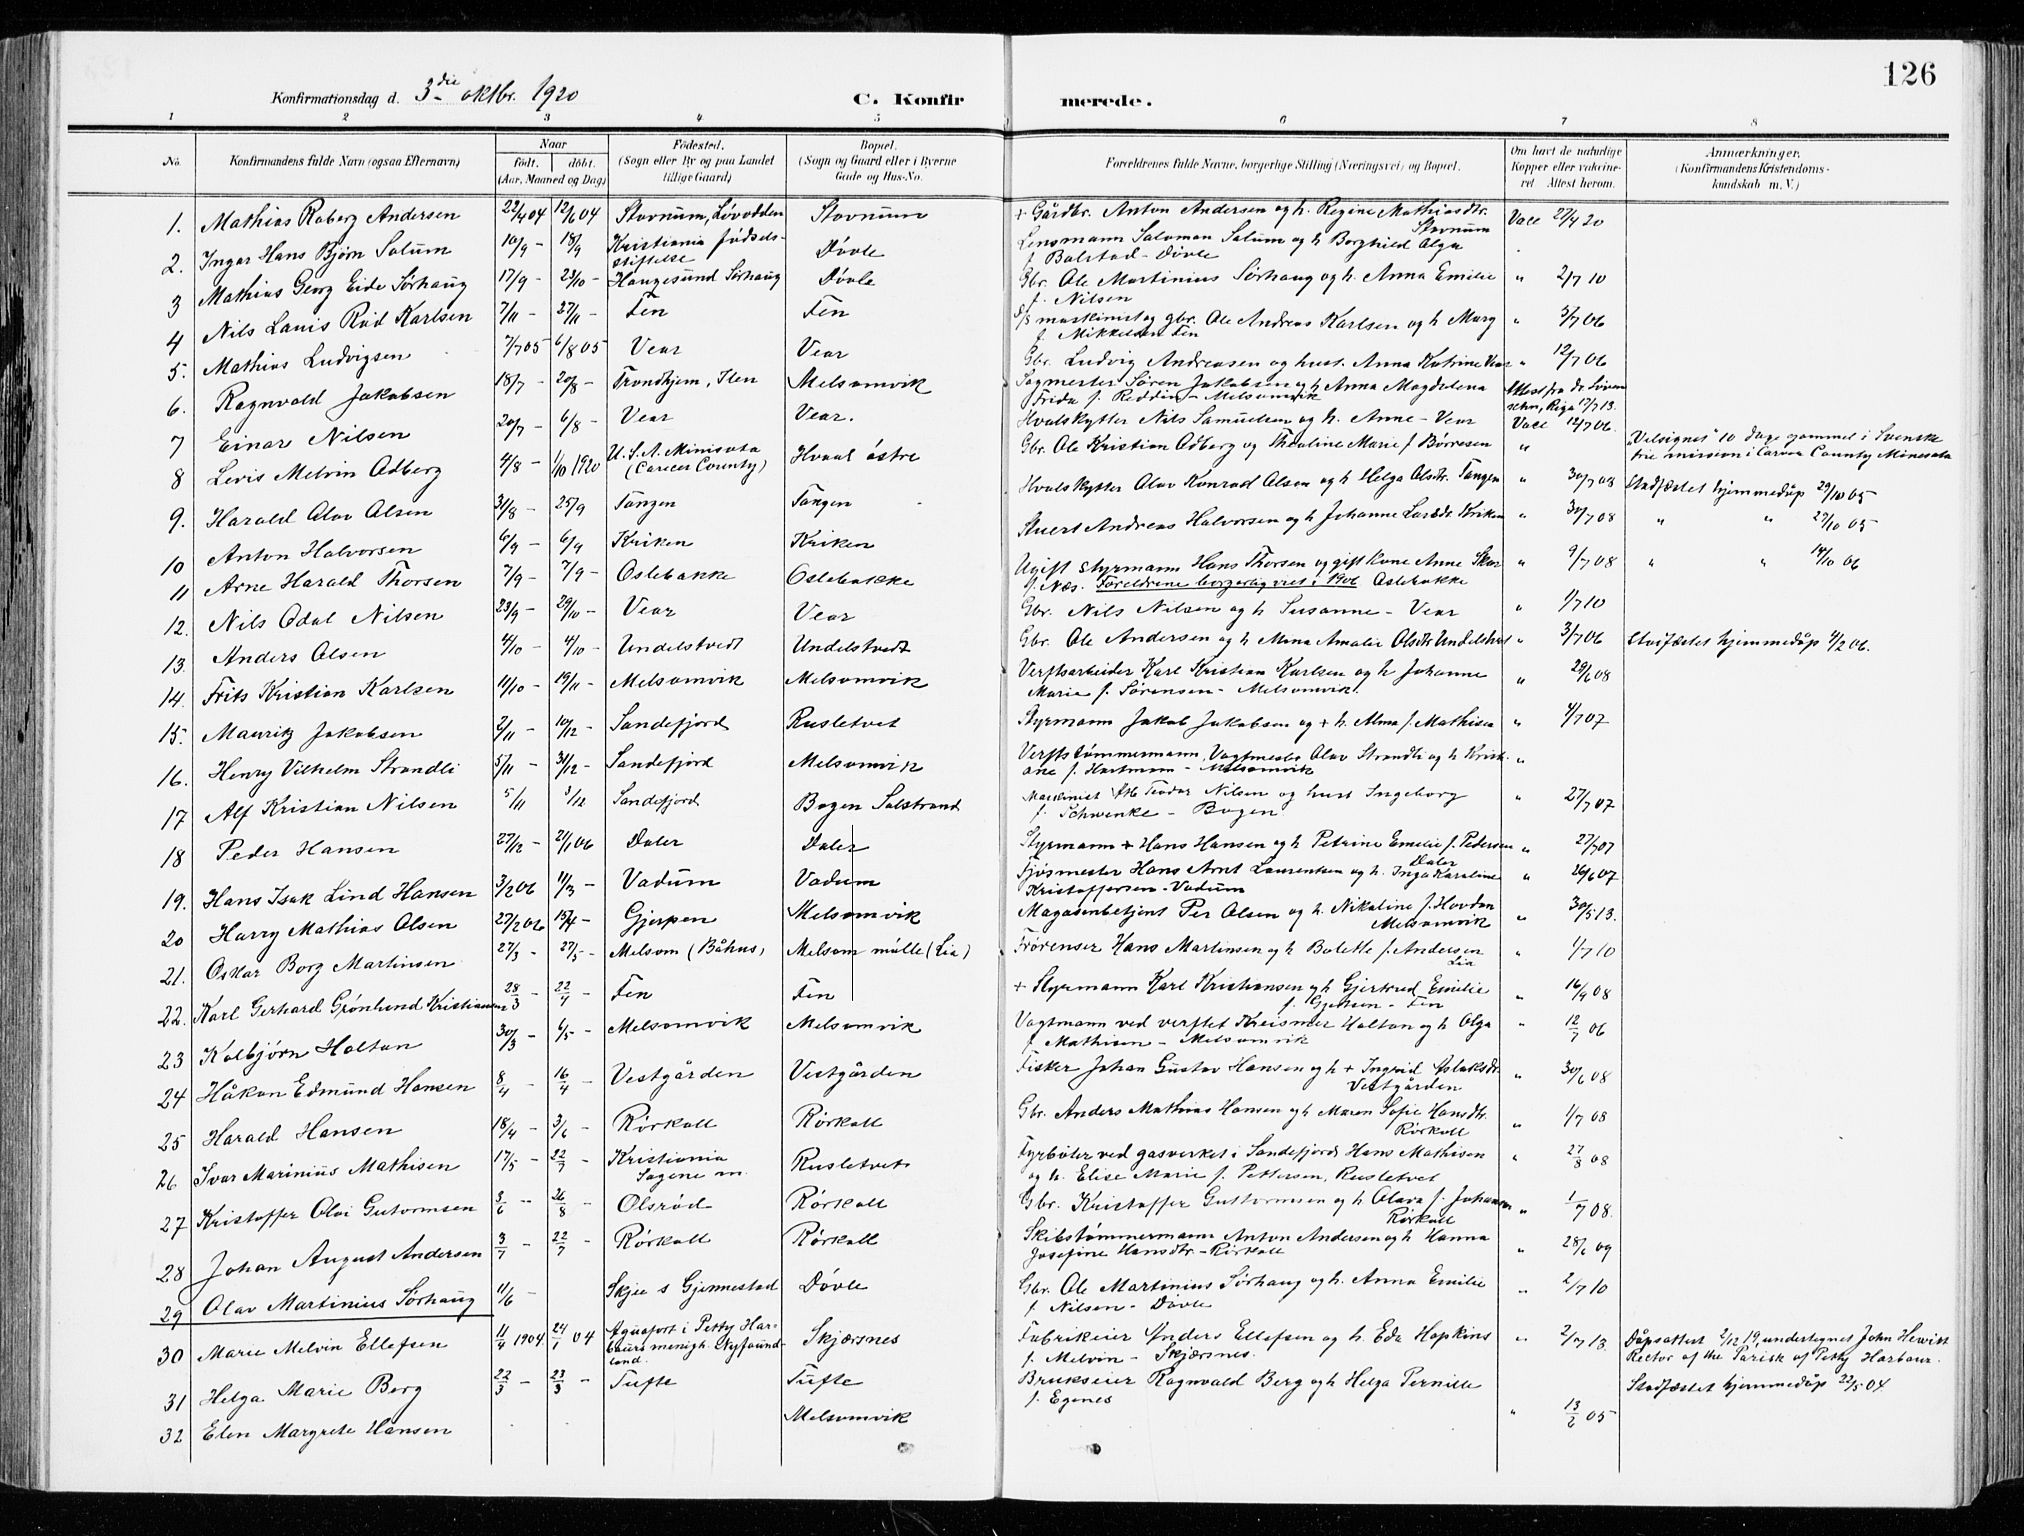 126
Konfirmationsdag d. 3die oktbr. 1920 C. Konfirmerede.
1 2 3 4 5 6 7 8
No. Konfirmandens fulde Navn (ogsaa Efternavn) Naar født. døbt. (Aar, Maaned og Dag) Fødested. (Sogn eller By og paa Landet tillige Gaard) Bopæl. (Sogn og Gaard eller i Byerne Gade og Hus-No. Forældrenes fulde Navne, borgerlige Stilling (Næringsvei) og Bopæl. Om havt de naturlige Kopper eller vakcineret. Attest herom. Anmærkninger. (Konfirmandens Kristendomskundskab m. V.)
1. Mathias Roberg Andersen 22/4 04 12/6 04 Stovnum, Løvodden Stovnum + Gårdbr. Anton Andersen og h. Regine Mathiasdtr. Stovnum Vacc 27/4 20
2. Ingar Hans Bjørn Solum 10/9 – 18/9 Kristiania fødselsstiftelse Døvle Lensmann Salomon Solum og h Borghild Olga f. Bolstad – Døvle
3 Mathias Georg Eide Sørhaug 17/9 – 23/10 – Haugesund Sørhaug Døvle Gbr. Ole Martinius Sørhaug og h. Anna Emilie f. Nilsen " 2/7 10
4 Nils Lauis Rød Karlsen 7/11 – 27/11 – Fen Fen S/S maskinist og gbr. Ole Andreas Karlsen og h Marg f. Mikkelsen Fen " 3/7 06
5. Mathias Ludvigsen 7/7 05 6/8 05 Vear Vear Gbr. Ludvig Andreasen og hust. Anna Katrine Vear " 12/7 06
6. Ragnvald Jakobsen 18/7 – 20/8 – Trondhjem, Ilen Melsomvik Sagmester Søren Jakobsen og h Anna Magdelena Frida f. Reddin – Melsomvik Attest fra dr. Riga 17/7 13.
7 Einar Nilsen 20/7 – 6/8 – Vear Vear. Hvalskytter Nils Samuelsen og h. Anne – Vear Vacc 12/7 06.
8 Levis Melvin Odberg 4/8 – 1/10 1920 U.S.A. Minisota (Carver County) Hvaal østre Gbr. Ole Kristian Odberg og Thealine Marie f Børresen " "Velsignet" 10 dage gammel i Svenske frie mission i Carver County Minesota
9. Harald Olav Olsen 31/8 – 25/9 Tangen Tangen Hvalskytter Olav Konrad Olsen og h Helga Olsdtr. Tangen " 30/7 08 Stadfæstet hjemmedåp 29/10 05
10 Anton Halvorsen 6/9 – 6/9 Kriken Kriken Stuert Andreas Halvorsen og h Johanne Larsdtr Kriken " 30/7 08 " " 27/10 05
11 Arne Harald Thorsen 7/9 – 7/9 – Oslebakke Oslebakke Ugift styrmann Hans Thorsen og gift kone Anne Skar f. Næs. Foreldrene borgerlig viet i 1906 Oslebakke " 9/7 08 " " 14/10 06
12. Nils Odal Nilsen 23/9 – 29/10 – Vear Vear Gbr. Nils Nilsen og h Susanne – Vear " 1/7 10
13. Anders Olsen 4/10 – 4/10 – Undelstvedt Undelstvedt Gbr. Ole Andersen og h Mina Amalie Olsdtr Undelstvet " 3/7 06 Stadfæstet hjemmedåp 4/2 06.
14. Frits Kristian Karlsen 11/10 – 19/11 – Melsomvik Melsomvik Verftsarbeider Karl Kristian Karlsen og h Johanne Marie f. Sørensen – Melsomvik " 29/6 08
15. Mauritz Jakobsen 2/11 – 10/12 – Sandefjord Rusletvet Styrmann Jakob Jakobsen og + h. Alma f. Mathisen " 4/7 07
16. Henry Vilhelm Strandli 5/11 – 31/12 – Sandefjord Melsomvik Verftstømmermann, Vagtmester Olav Strandli og h Kristiane f. Hartmann – Melsomvik "
17 Alf Kristian Nilsen 5/11 3/12 Sandefjord Bogen Solstrand Maskinist Teodor Nilsen og hust Ingeborg f. Schwenke – Bogen " 27/7 07
18 Peder Hansen 27/12 – 21/1 06 Daler Daler Styrmann + Hans Hansen og h Petrine Emelie f. Pedersen Daler " 27/7 07
19. Hans Isak Lind Hansen 3/2 06 11/3 – Vadum Vadum Fjøsmester Hans Arnt Laurentsen og h. Inga Karoline Kristoffersen – Vadum " 26/6 07
20 Harry Mathias Olsen 27/2 06 15/4 – Gjerpen Melsomvik Magasinbetjent Per Olsen og h. Nikoline f. Hovdan Melsomvik " 30/5 13.
21. Oskar Borg Martinsen 27/3 – 27/5 – Melsom (Båhus) Melsom mølle (Lia) Frørenser Hans Martinsen og h Bolette f. Andersen Lia " 1/7 10
22. Karl Gerhard Grønlund Kristiansen 28/3 – 22/4 – Fen Fen + Styrmann Karl Kristiansen og h Gjertrud Emilie f. Gjertsen – Fen " 16/9 08
23 Kolbjørn Holtan 30/3 – 6/5 – Melsomvik Melsomvik Vagtmann ved verftet Kreismer Holtan og h Olga f Mathisen – Melsomvik " 12/7 06
24 Håkon Edmund Hansen 8/4 – 16/4 – Vestgården Vestgården Fisker Johan Gustav Hansen og h + Ingrid Aslaksdtr Vestgården " 30/6 08
25 Harald Hansen 18/4 – 3/6 – Rørkoll Rørkoll Gbr. Anders Mathias Hansen og h Maren Sofie Hansdtr. Rørkoll " 1/7 08
26 Ivar Marinius Mathisen 17/5 – 22/7 – Kristiania Sagene m. Rusletvet Fyrbøter ved gasverket i Sandefjord Hans Mathisen og h. Elise Marie f. Pettersen, Rusletvet " 27/8 08
27 Kristoffer Olai Gutormsen 3/6 – 26/8 – Olsrød Rørkoll Gbr. Kristoffer Guttormsen og h Olava f. Johansen Rørkoll " 1/7 08.
28 Johan August Andersen 3/7 – 22/7 – Rørkoll Rørkoll Skibstømmermann Anton Andersen og h Hanna Josefine Hansdtr – Rørkoll " 28/6 09
29 Olav Martinius Sørhaug 11/6 – Skjee s Gjennestad Døvle Gbr. Ole Martinius Sørhaug og h. Anna Emilie f. Nilsen – Døvle " 2/7 10
30 Marie Melvin Ellefsen 11/4 1904 24/1 04 Aquafort i Petty Harbours menigh. Nyfoundland. Skjærsnes Fabrikeier Anders Ellefsen og h. Eda Hopkins f. Melvin – Skjærsnes. " 2/7 13. Dåpsattest 2/12 19, undertegnet John Hewitt Rector of the Parish of Petty Harbour.
31 Helga Marie Berg 22/3 – 23/3 – Tufte Tufte Brukseier Ragnvald Berg og h Helga Pernille f. Egenes Stadfæstet hjemmedåp 22/5 04
32 Elen Margrete Hansen Melsomvik " 13/6 05